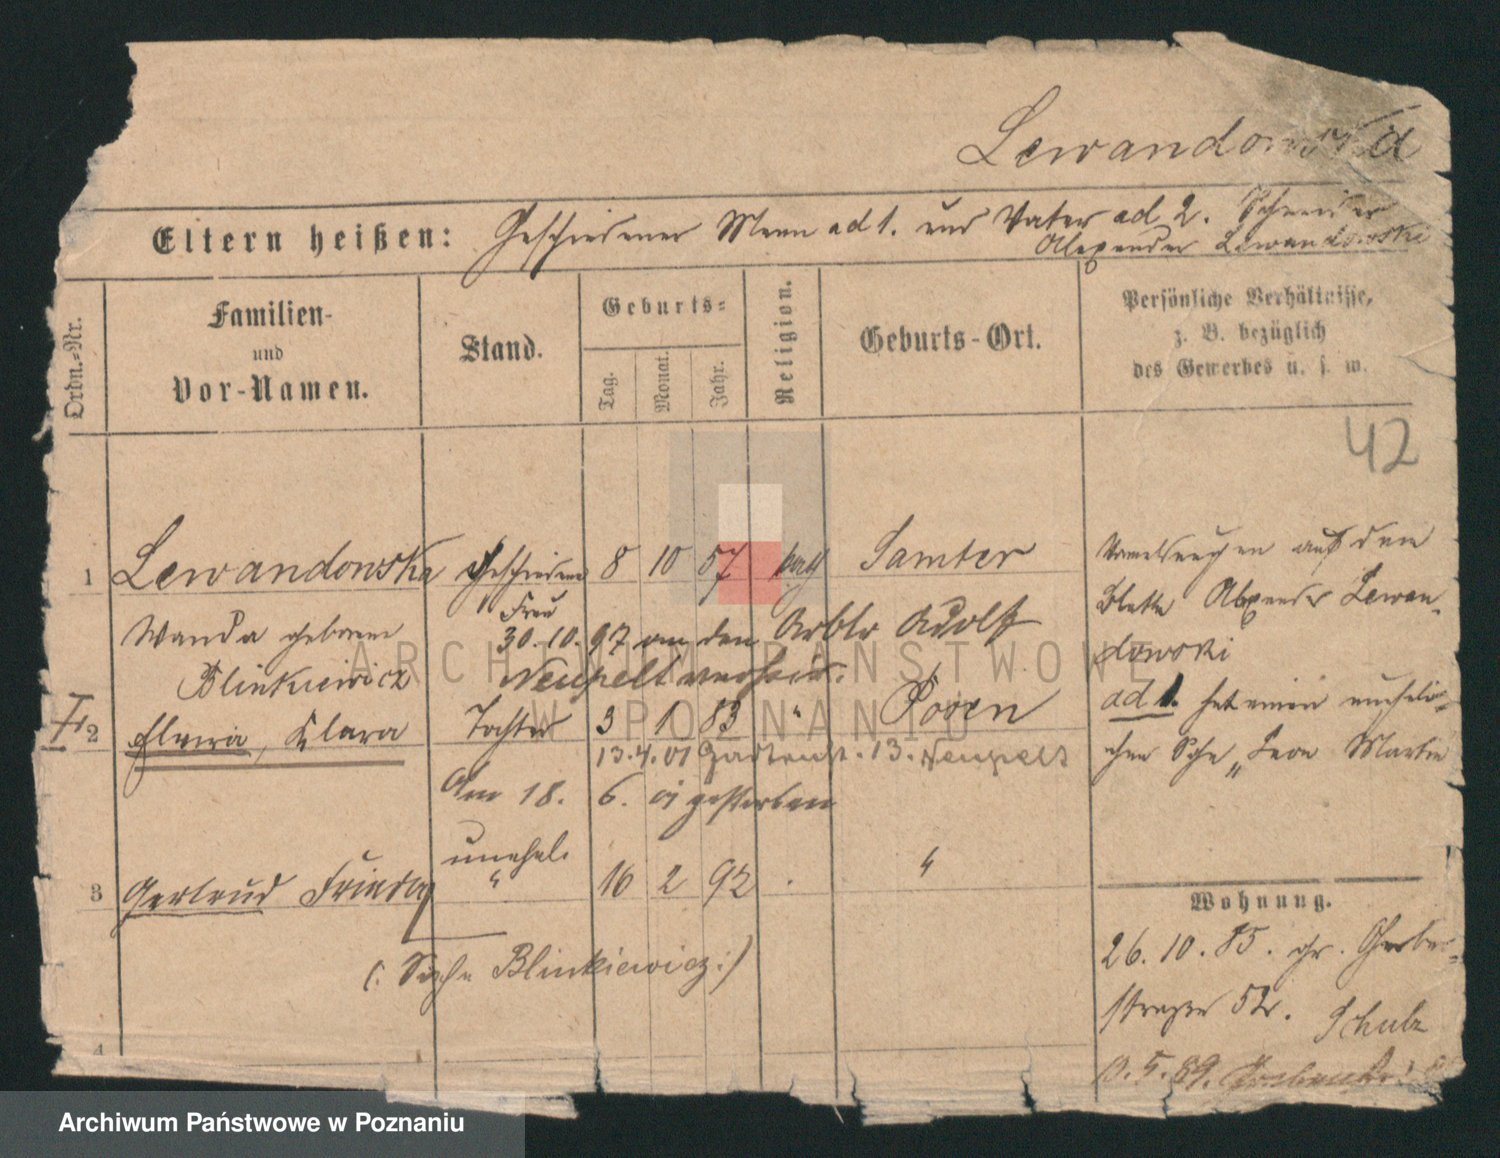 Lewandowska
Eltern heißen: Geschiedener Mann ad 1. und Vater ad 2. Schneider
Alexander Lewandowski
Ordn.-Nr.
Familien-
und
Vor-Namen.
Stand.
Geburts-
Tag.
Monat.
Jahr.
Religion.
Geburts-Ort.
Persönliche Verhältnisse,
z. B. bezüglich
des Gewerbes u. s. w.
42
1 Lewandowska geschiedene 8 10 57 kath Samter
Frau
Wanda geborene 30.10.97 an den Arbtr Adolf
Blinkiewicz Neupelt verheir.
2 Elvira, Klara Tochter 3 1 83 " Posen
13.4.01 13. Neupelt
Am 18. 6. 01 gestorben
unehel.
3 Gertrud Frieda " 16 2 92 . "
(: Siehe Blinkiewicz :)
4
auf dem
Blatte Alexander Lewan-
dowski
ad 1. hat einen uneheli-
chen Sohn „Leon Martin
Wohnung.
26.10.85. gr. Gerber-
straße 52. Schulz
13.5.89.
ARCHIWUM PAŃSTWOWE
W POZNANIU
Archiwum Państwowe w Poznaniu